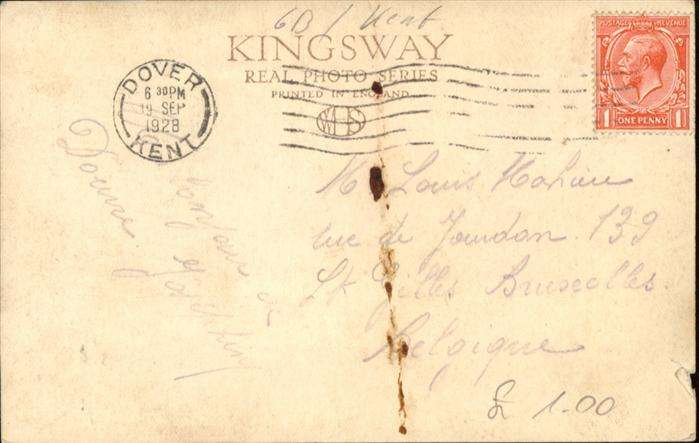 6B / Kent
KINGSWAY
REAL PHOTO SERIES
PRINTED IN ENGLAND
WHS
DOVER
6 30 PM
19 SEP
1928
KENT
POSTAGE REVENUE
1 ONE PENNY 1
Bonjour de
Douvre
M. Louis
rue de Jourdan 139
St Gilles Bruxelles.
Belgique
£ 1.00